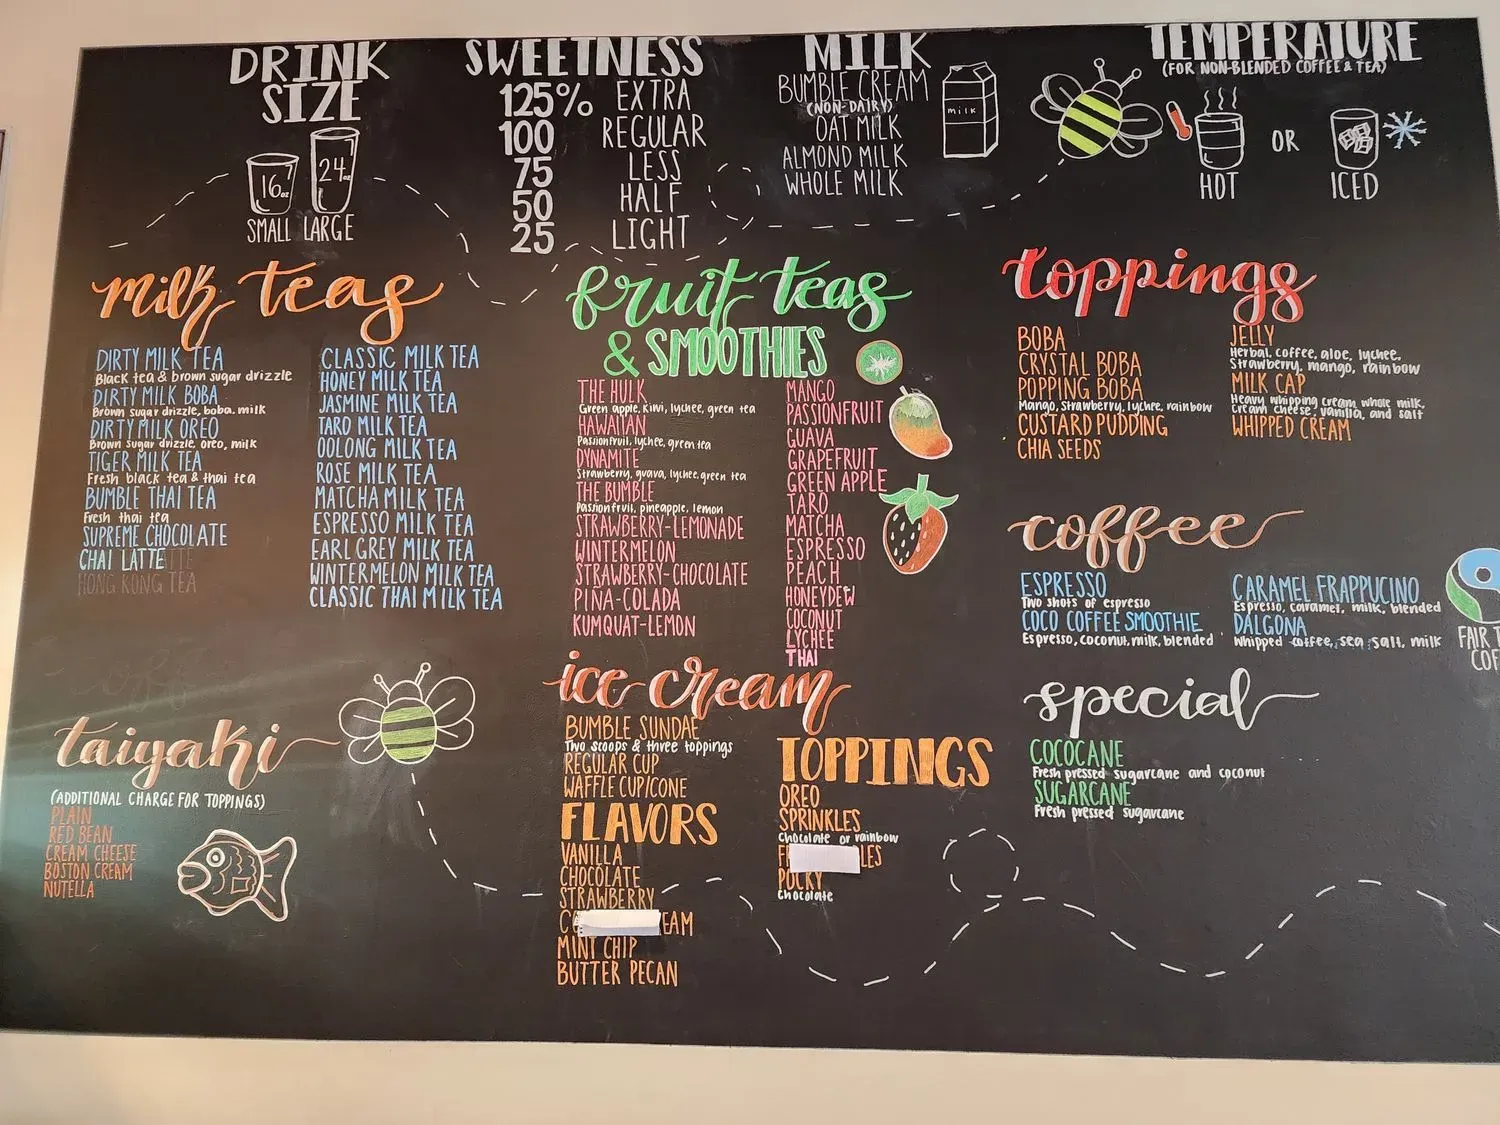 DRINK
SIZE
16oz
24oz
SMALL LARGE
SWEETNESS
125% EXTRA
100 REGULAR
75 LESS
50 HALF
25 LIGHT
MILK
BUMBLE CREAM
(NON-DAIRY)
OAT MILK
ALMOND MILK
WHOLE MILK
milk
TEMPERATURE
(FOR NON-BLENDED COFFEE & TEA)
HOT OR ICED
milk teas
DIRTY MILK TEA
Black tea & brown sugar drizzle
DIRTY MILK BOBA
Brown sugar drizzle, boba, milk
DIRTY MILK OREO
Brown sugar drizzle, oreo, milk
TIGER MILK TEA
Fresh black tea & thai tea
BUMBLE THAI TEA
Fresh thai tea
SUPREME CHOCOLATE
CHAI LATTE
HONG KONG TEA
CLASSIC MILK TEA
HONEY MILK TEA
JASMINE MILK TEA
TARO MILK TEA
OOLONG MILK TEA
ROSE MILK TEA
MATCHA MILK TEA
ESPRESSO MILK TEA
EARL GREY MILK TEA
WINTERMELON MILK TEA
CLASSIC THAI MILK TEA
fruit teas
& SMOOTHIES
THE HULK
Green apple, kiwi, lychee, green tea
HAWAIIAN
Passionfruit, lychee, green tea
DYNAMITE
Strawberry, guava, lychee, green tea
THE BUMBLE
Passionfruit, pineapple, lemon
STRAWBERRY-LEMONADE
WINTERMELON
STRAWBERRY-CHOCOLATE
PIÑA-COLADA
KUMQUAT-LEMON
MANGO
PASSIONFRUIT
GUAVA
GRAPEFRUIT
GREEN APPLE
TARO
MATCHA
ESPRESSO
PEACH
HONEYDEW
COCONUT
LYCHEE
THAI
toppings
BOBA
CRYSTAL BOBA
POPPING BOBA
Mango, Strawberry, lychee, rainbow
CUSTARD PUDDING
CHIA SEEDS
JELLY
Herbal, coffee, aloe, lychee,
Strawberry, mango, rainbow
MILK CAP
Heavy whipping cream, whole milk,
cream cheese, vanilla, and salt
WHIPPED CREAM
coffee
ESPRESSO
Two shots of espresso
COCO COFFEE SMOOTHIE
Espresso, coconut, milk, blended
CARAMEL FRAPPUCINO
Espresso, caramel, milk, blended
DALGONA
Whipped coffee, sea salt, milk
FAIR T
COF
taiyaki
(ADDITIONAL CHARGE FOR TOPPINGS)
PLAIN
RED BEAN
CREAM CHEESE
BOSTON CREAM
NUTELLA
ice cream
BUMBLE SUNDAE
Two scoops & three toppings
REGULAR CUP
WAFFLE CUP/CONE
FLAVORS
VANILLA
CHOCOLATE
STRAWBERRY
EAM
MINT CHIP
BUTTER PECAN
TOPPINGS
OREO
SPRINKLES
Chocolate or rainbow
LES
POCKY
Chocolate
special
COCOCANE
Fresh pressed sugarcane and coconut
SUGARCANE
Fresh pressed sugarcane